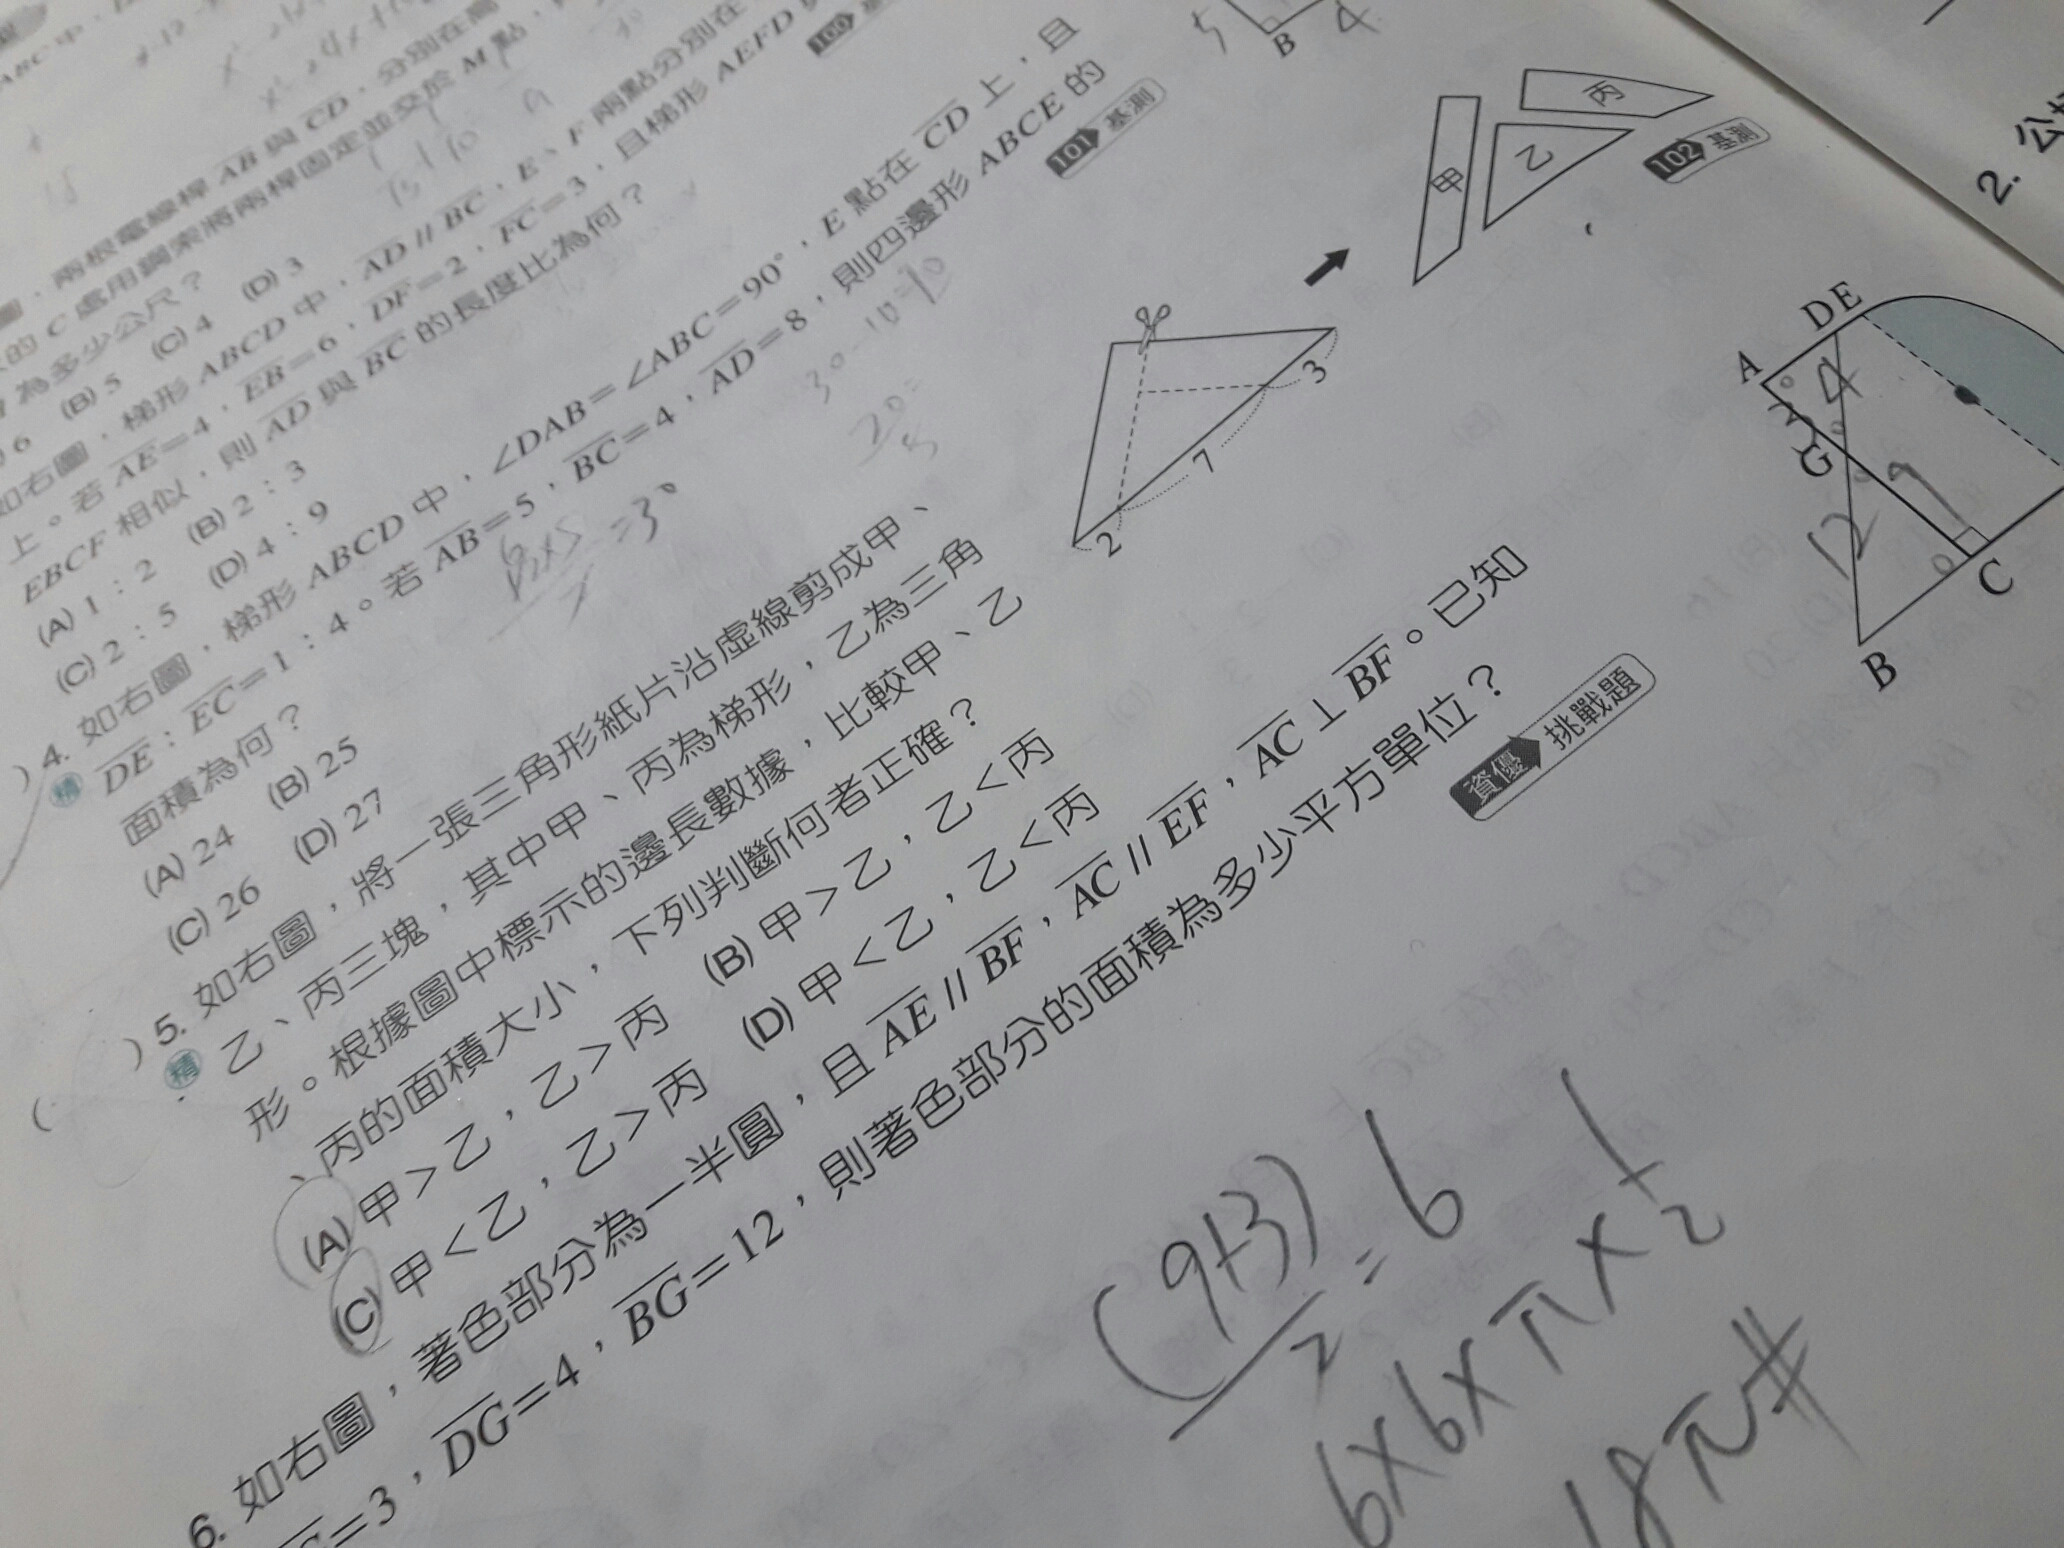 兩根電線桿AB與CD,分別在高
的C處用鋼索將兩桿固定並交於M點,
為多少公尺?
6 (B) 5 (C) 4 (D) 3
如右圖,梯形ABCD中,AD // BC,E、F兩點分別在
上。若AE=4,EB=6,DF=2,FC=3,且梯形AEFD
EBCF相似,則AD與BC的長度比為何?
(A) 1:2 (B) 2:3
(C) 2:5 (D) 4:9
)4. 如右圖,梯形ABCD中,∠DAB=∠ABC=90°,E點在CD上,且
精 DE:EC=1:4。若AB=5,BC=4,AD=8,則四邊形ABCE的
面積為何?
101 基測
(A) 24 (B) 25
(C) 26 (D) 27
( )5. 如右圖,將一張三角形紙片沿虛線剪成甲、
精 乙、丙三塊,其中甲、丙為梯形,乙為三角
形。根據圖中標示的邊長數據,比較甲、乙
、丙的面積大小,下列判斷何者正確?
(A) 甲>乙,乙>丙 (B) 甲>乙,乙<丙
(C) 甲<乙,乙>丙 (D) 甲<乙,乙<丙
2
7
3
甲
乙
丙
102 基測
6. 如右圖,著色部分為一半圓,且AE // BF,AC // EF,AC⊥BF。已知
=3,DG=4,BG=12,則著色部分的面積為多少平方單位?
資優 挑戰題
D E
A
4
G
9
12
C
B
(9+3)
2
=6
6×6×π×1
2
18π#
B
4
2. 公